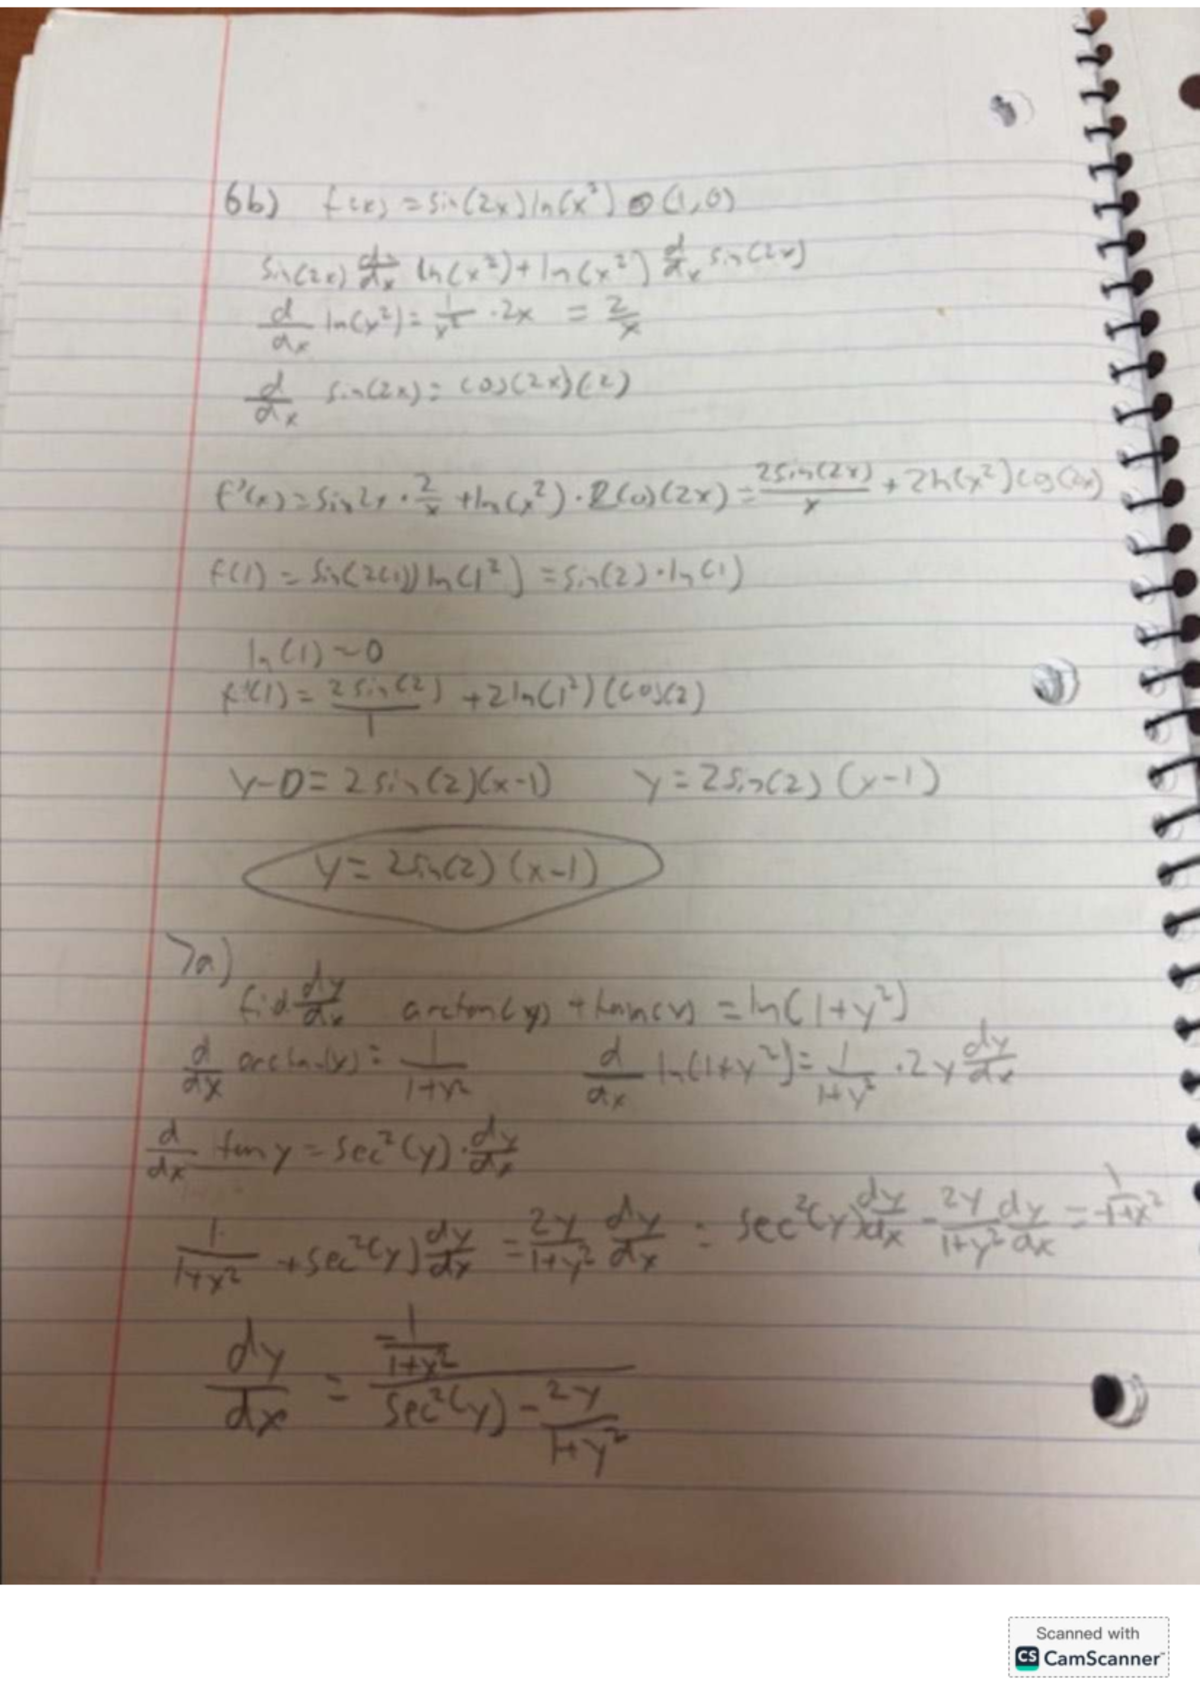 6b) f(x) = sin(2x) ln(x²) @ (1,0)
sin(2x) d/dx ln(x²) + ln(x²) d/dx sin(2x)
d/dx ln(x²) = 1/x² · 2x = 2/x
d/dx sin(2x) = cos(2x)(2)
f'(x) = sin2x · 2/x + ln(x²) · 2cos(2x) = 2sin(2x)/x + 2ln(x²)cos(2x)
f(1) = sin(2(1)) ln(1²) = sin(2) · ln(1)
ln(1) = 0
f'(1) = 2sin(2)/1 + 2ln(1²)(cos(2)
y-0 = 2sin(2)(x-1) y = 2sin(2) (x-1)
y = 2sin(2) (x-1)
7a)
find dy/dx arctan(x) + tan(y) = ln(1+y²)
d/dx arctan(x) = 1/1+x² d/dx ln(1+y²) = 1/1+y² · 2y dy/dx
d/dx tan y = sec²(y) · dy/dx
1/1+x² + sec²(y) dy/dx = 2y/1+y² dy/dx = sec²(y) dy/dx - 2y/1+y² dy/dx = -1/1+x²
dy/dx = -1/1+x² / sec²(y) - 2y/1+y²
Scanned with
CS CamScanner